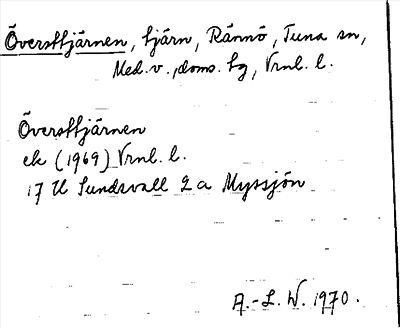 Överstjärnen, tjärn, Rännö, Tuna sn,
Med. v., doms. hg, Vrnl. l.
Överstjärnen
ek (1969) Vrnl. l.
17 H Sundsvall 2 a Myssjön
A.-L. W. 1970.